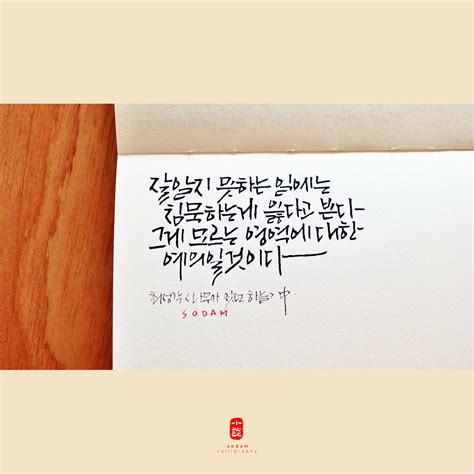 잘알지 못하는 일에는
침묵하는게 옳다고 본다
그게 모르는 영역에 대한
예의일것이다
최성각 <나무가 있던 하늘> 中.
SODAM
小談
sodam
calligraphy